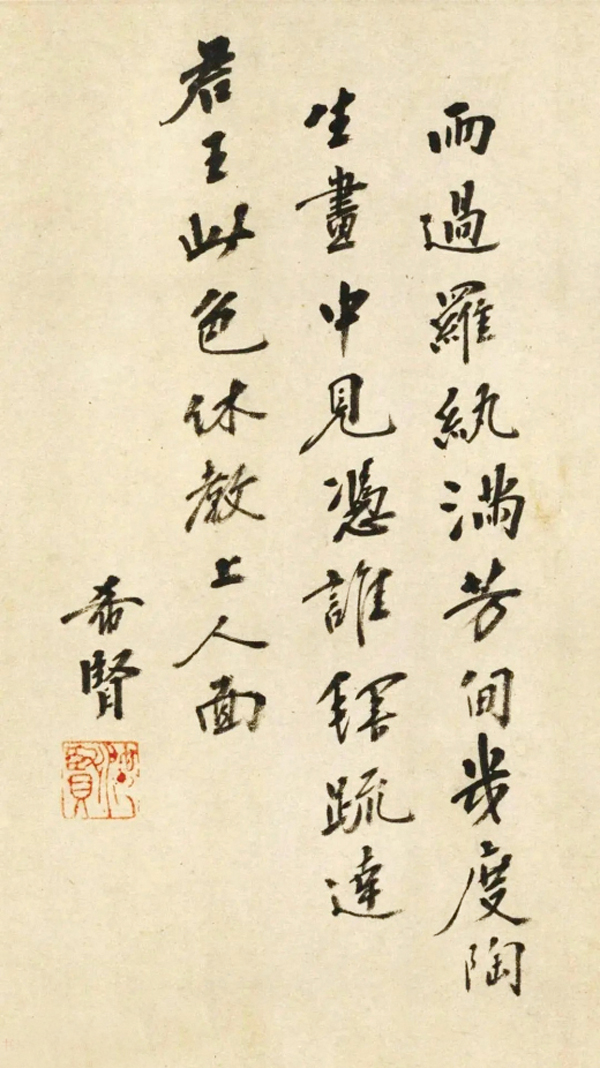 雨過羅紈滿芳甸幾度陶
生畫中見憑誰疏達
君王此色休教上人面
希賢